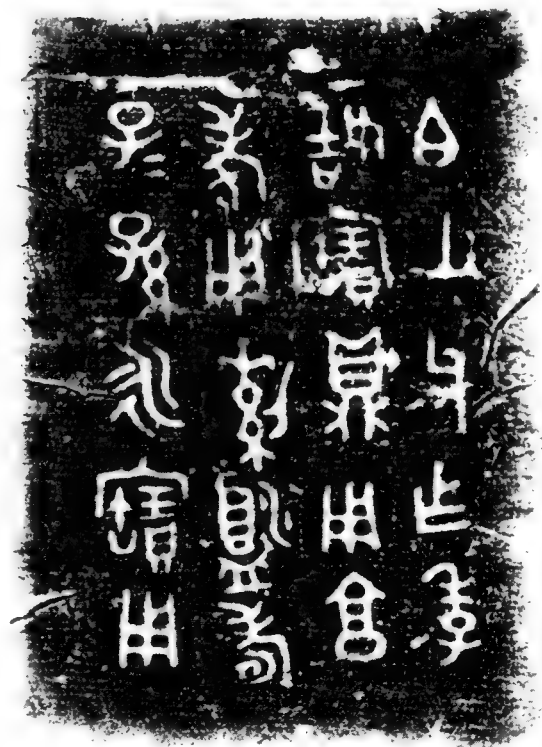 白山父乍季
姞寶鼎用亯
孝用眉壽
子孫永寶用